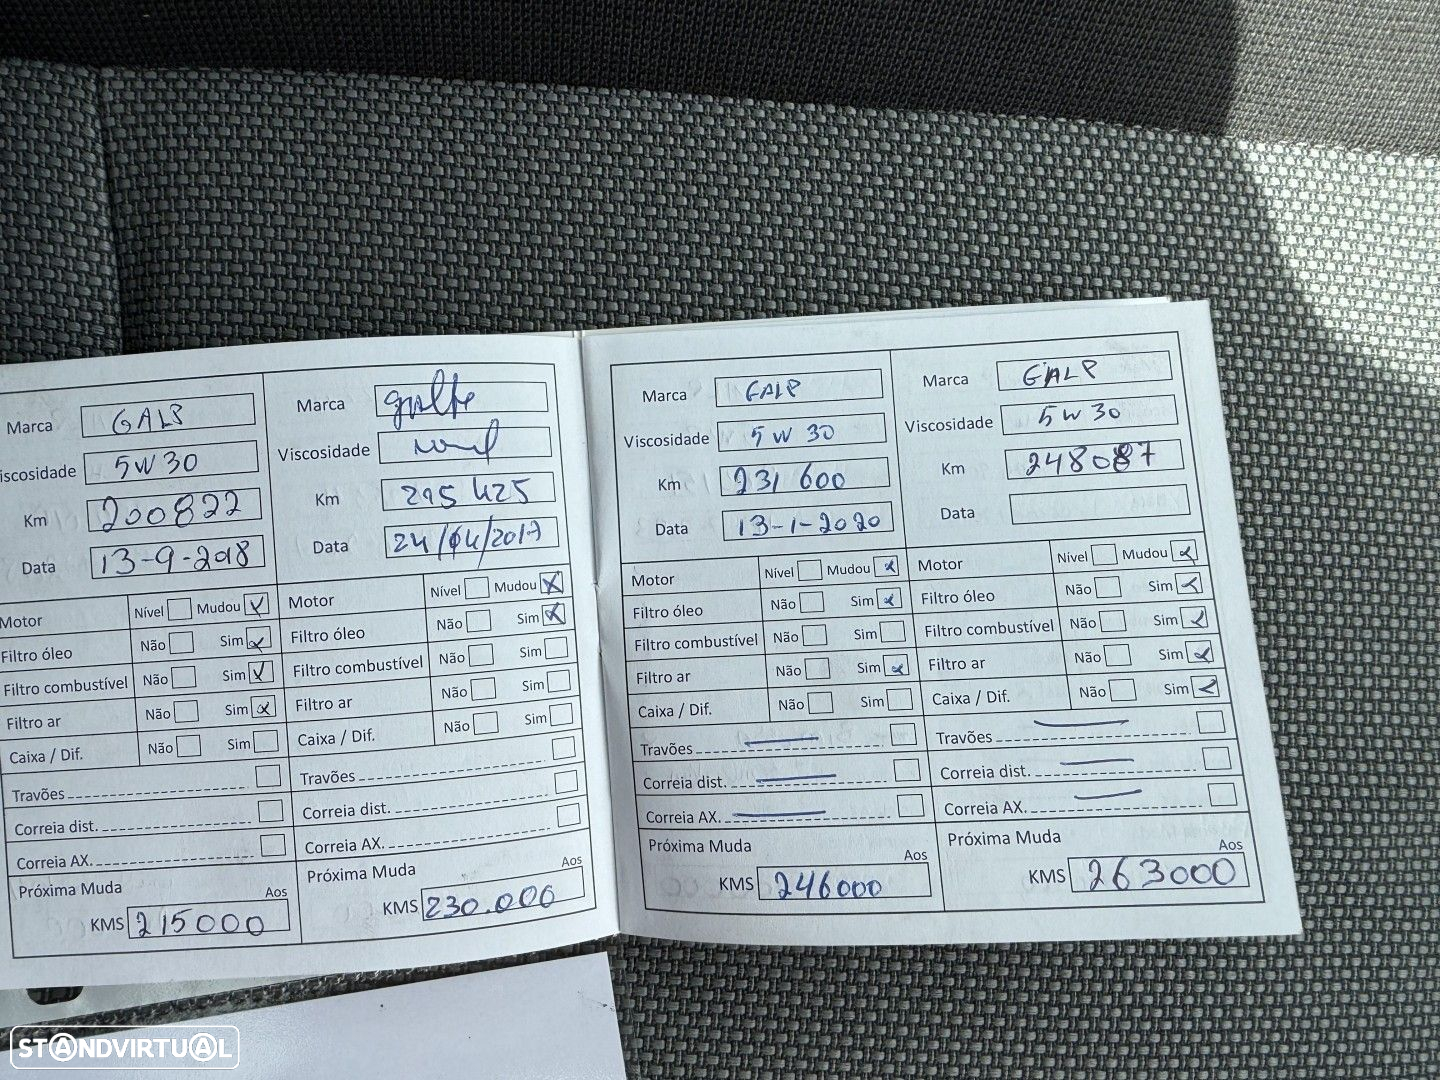 Marca GALP
iscosidade 5W30
Km 200822
Data 13-9-2018
Motor Nível Mudou X
Filtro óleo Não Sim X
Filtro combustível Não Sim X
Filtro ar Não Sim X
Caixa / Dif. Não Sim
Travões
Correia dist.
Correia AX.
Próxima Muda
Aos
KMS 215000
Marca
Viscosidade
Km 215 425
Data 24/04/2019
Motor Nível Mudou X
Filtro óleo Não Sim X
Filtro combustível Não Sim
Filtro ar Não Sim
Caixa / Dif. Não Sim
Travões
Correia dist.
Correia AX.
Próxima Muda
Aos
KMS 230.000
Marca GALP
Viscosidade 5W 30
Km 231 600
Data 13-1-2020
Motor Nível Mudou X
Filtro óleo Não Sim X
Filtro combustível Não Sim
Filtro ar Não Sim X
Caixa / Dif. Não Sim
Travões
Correia dist.
Correia AX.
Próxima Muda
Aos
KMS 246000
Marca GALP
Viscosidade 5W 30
Km 248087
Data
Motor Nível Mudou X
Filtro óleo Não Sim X
Filtro combustível Não Sim X
Filtro ar Não Sim X
Caixa / Dif. Não Sim X
Travões
Correia dist.
Correia AX.
Próxima Muda
Aos
KMS 263000
STANDVIRTUAL